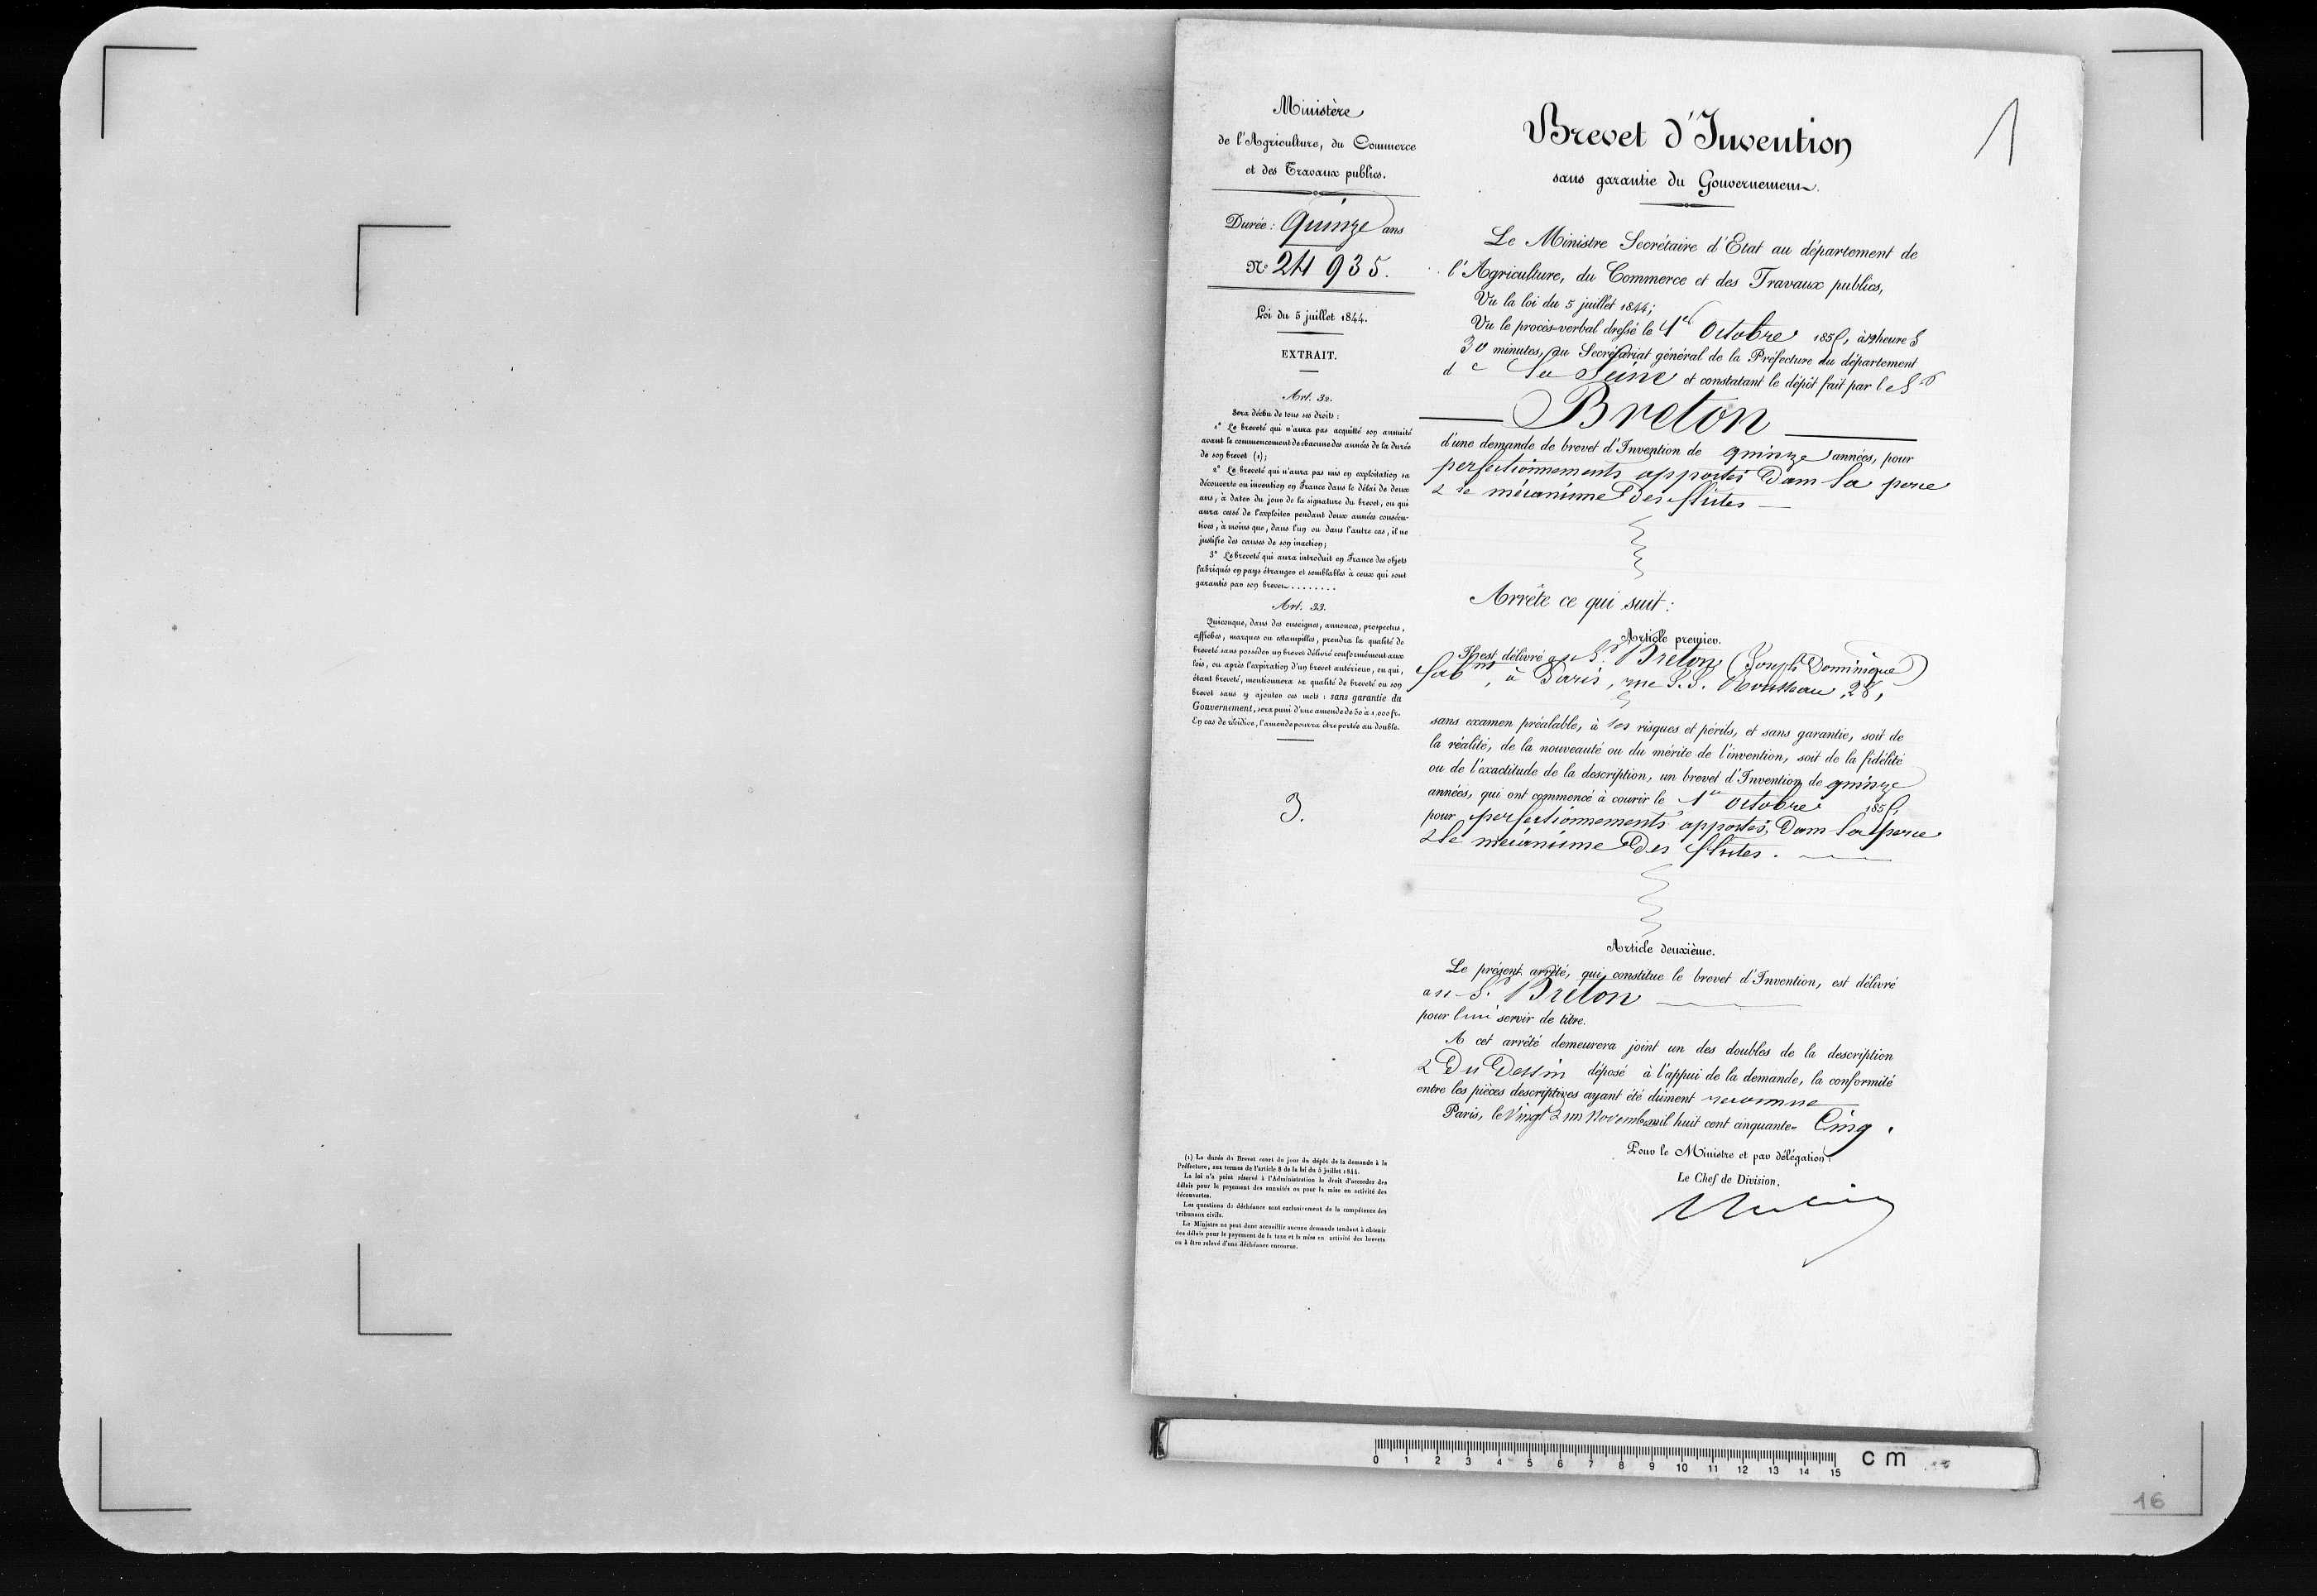 Ministère
de l'Agriculture, du Commerce
et des Travaux publics.
Durée : Quinze ans
N° 24 935.
Loi du 5 juillet 1844.
EXTRAIT.
Art. 32.
Sera déchu de tous ses droits :
1° Le breveté qui n'aura pas acquitté son annuité
avant le commencement de chacune des années de la durée
de son brevet (1);
2° Le breveté qui n'aura pas mis en exploitation sa
découverte ou invention en France dans le délai de deux
ans, à dater du jour de la signature du brevet, ou qui
aura cessé de l'exploiter pendant deux années consécu-
tives, à moins que, dans l'un ou dans l'autre cas, il ne
justifie des causes de son inaction;
3° Le breveté qui aura introduit en France des objets
fabriqués en pays étranger et semblables à ceux qui sont
garantis par son brevet........
Art. 33.
Quiconque, dans des enseignes, annonces, prospectus,
affiches, marques ou estampilles, prendra la qualité de
breveté sans posséder un brevet délivré conformément aux
lois, ou après l'expiration d'un brevet antérieur, ou qui,
étant breveté, mentionnera sa qualité de breveté ou son
brevet sans y ajouter ces mots : sans garantie du
Gouvernement, sera puni d'une amende de 50 à 1,000 fr.
En cas de récidive, l'amende pourra être portée au double.
3.
(1) La durée du Brevet court du jour du dépôt de la demande à la
Préfecture, aux termes de l'article 8 de la loi du 5 juillet 1844.
La loi n'a point réservé à l'Administration le droit d'accorder des
délais pour le payement des annuités ou pour la mise en activité des
découvertes.
Les questions de déchéance sont exclusivement de la compétence des
tribunaux civils.
Le Ministre ne peut donc accueillir aucune demande tendant à obtenir
des délais pour le payement de la taxe et la mise en activité des brevets
ou à être relevé d'une déchéance encourue.
Brevet d'Invention
sans garantie du Gouvernement.
1
Le Ministre Secrétaire d'Etat au département de
l'Agriculture, du Commerce et des Travaux publics,
Vu la loi du 5 juillet 1844;
Vu le procès-verbal dressé le 1er Octobre 1855, à heures
30 minutes, au Secrétariat général de la Préfecture du département
de la Seine et constatant le dépôt fait par le Sr
Breton
d'une demande de brevet d'Invention de quinze années, pour
perfectionnements apportés dans la perce
& le mécanisme des flûtes
Arrête ce qui suit :
Article premier.
Il est délivré au Sr Breton (Joseph Dominique)
fabnt, à Paris, rue J.J. Rousseau, 28,
sans examen préalable, à ses risques et périls, et sans garantie, soit de
la réalité, de la nouveauté ou du mérite de l'invention, soit de la fidélité
ou de l'exactitude de la description, un brevet d'Invention de quinze
années, qui ont commencé à courir le 1er Octobre 1855,
pour perfectionnements apportés dans la perce
& le mécanisme des flûtes.
Article deuxième.
Le présent arrêté, qui constitue le brevet d'Invention, est délivré
au Sr Breton
pour lui servir de titre.
A cet arrêté demeurera joint un des doubles de la description
& du Dessin déposé à l'appui de la demande, la conformité
entre les pièces descriptives ayant été dûment reconnue
Paris, le Vingt & un Novembre mil huit cent cinquante- Cinq.
Pour le Ministre et par délégation :
Le Chef de Division.
0 1 2 3 4 5 6 7 8 9 10 11 12 13 14 15 cm
16